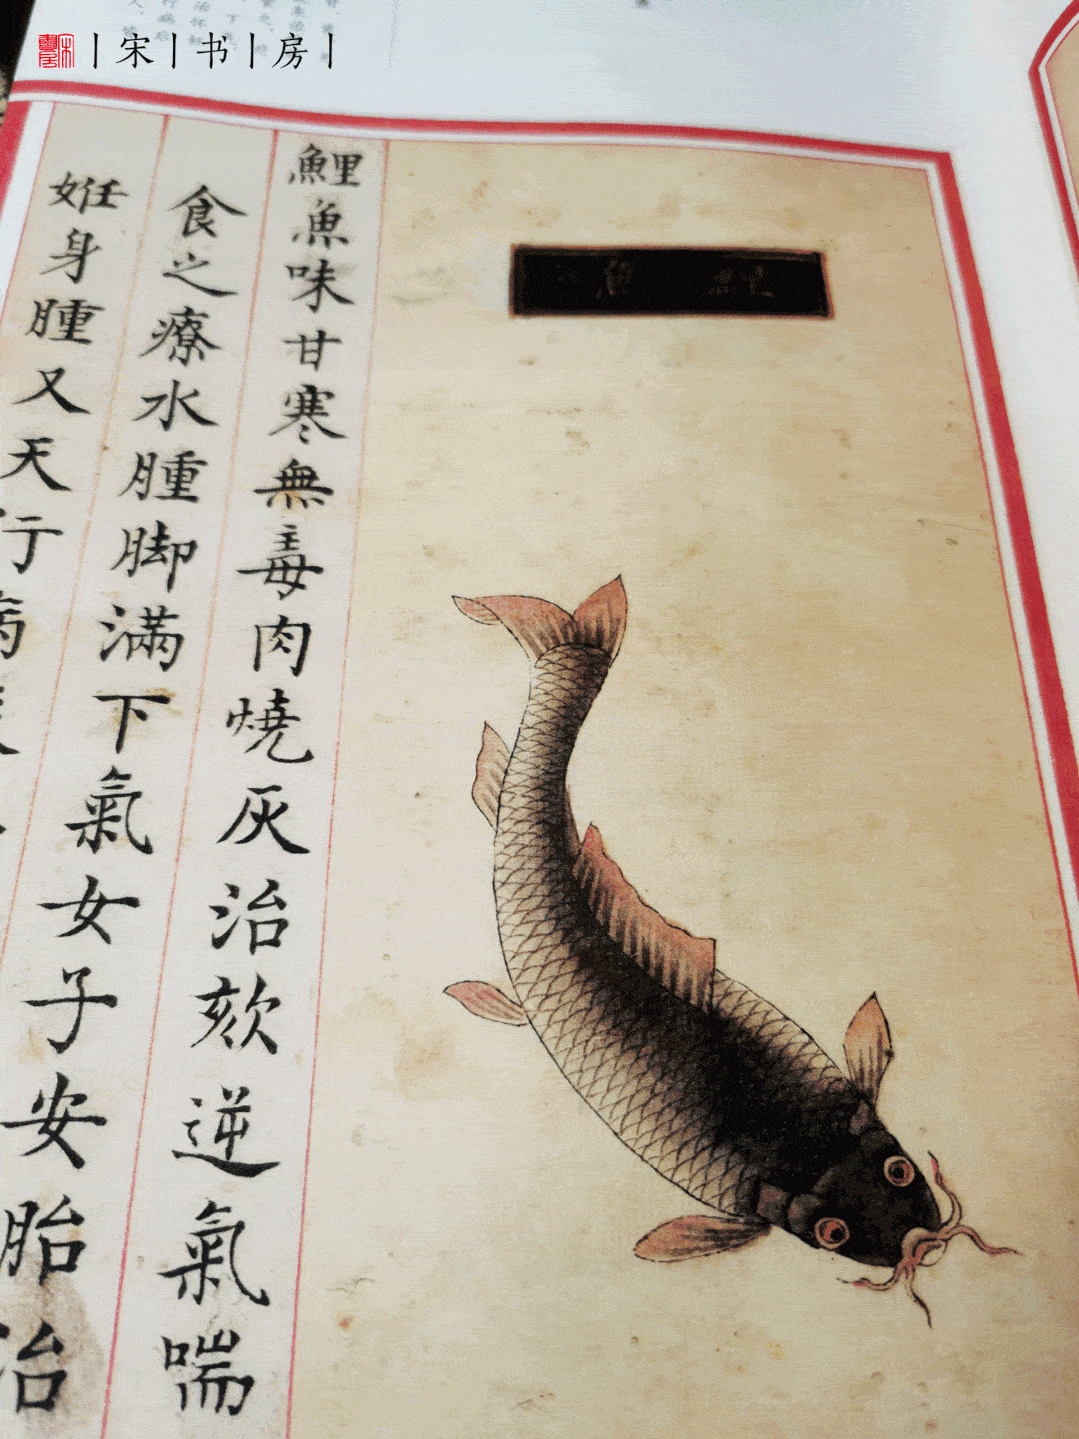 宋书房
鯉魚
鯉魚味甘寒無毒肉燒灰治欬逆氣喘
食之療水腫脚滿下氣女子安胎治
妊身腫又天行病